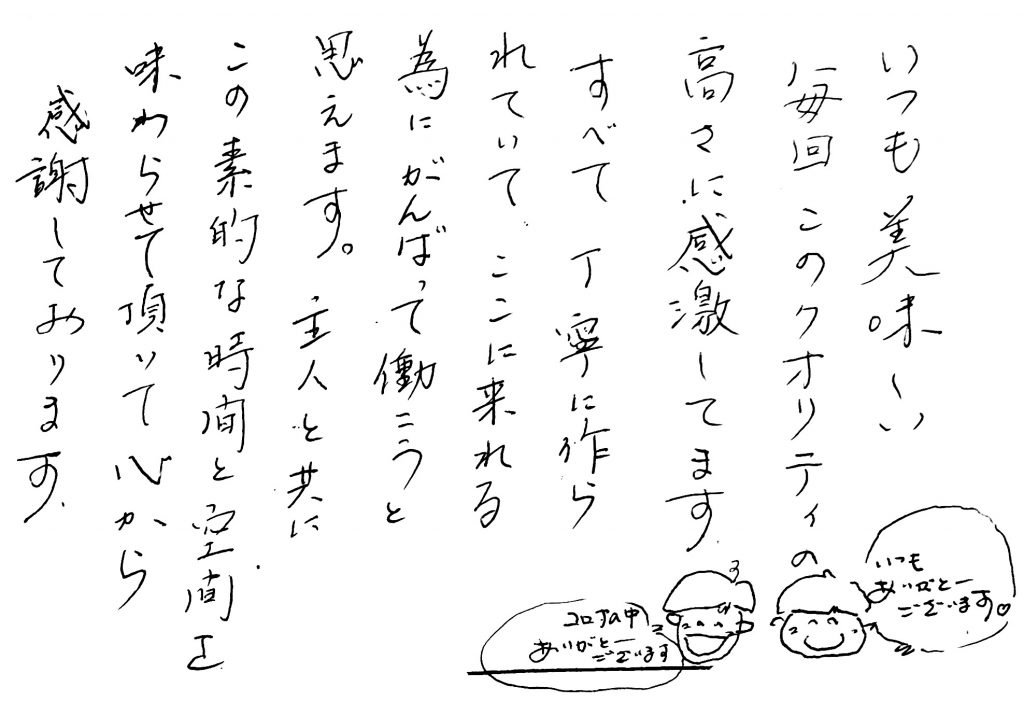 いつも美味しい
毎回このクオリティの
高さに感激してます
すべて丁寧に作ら
れていてここに来れる
為にがんばって働こうと
思えます。主人と共に
この素的な時間と空間を
味わらせて頂いて心から
感謝しております。
いつも
ありがとー
ございます♡
コロナの中
ありがとー
ございます